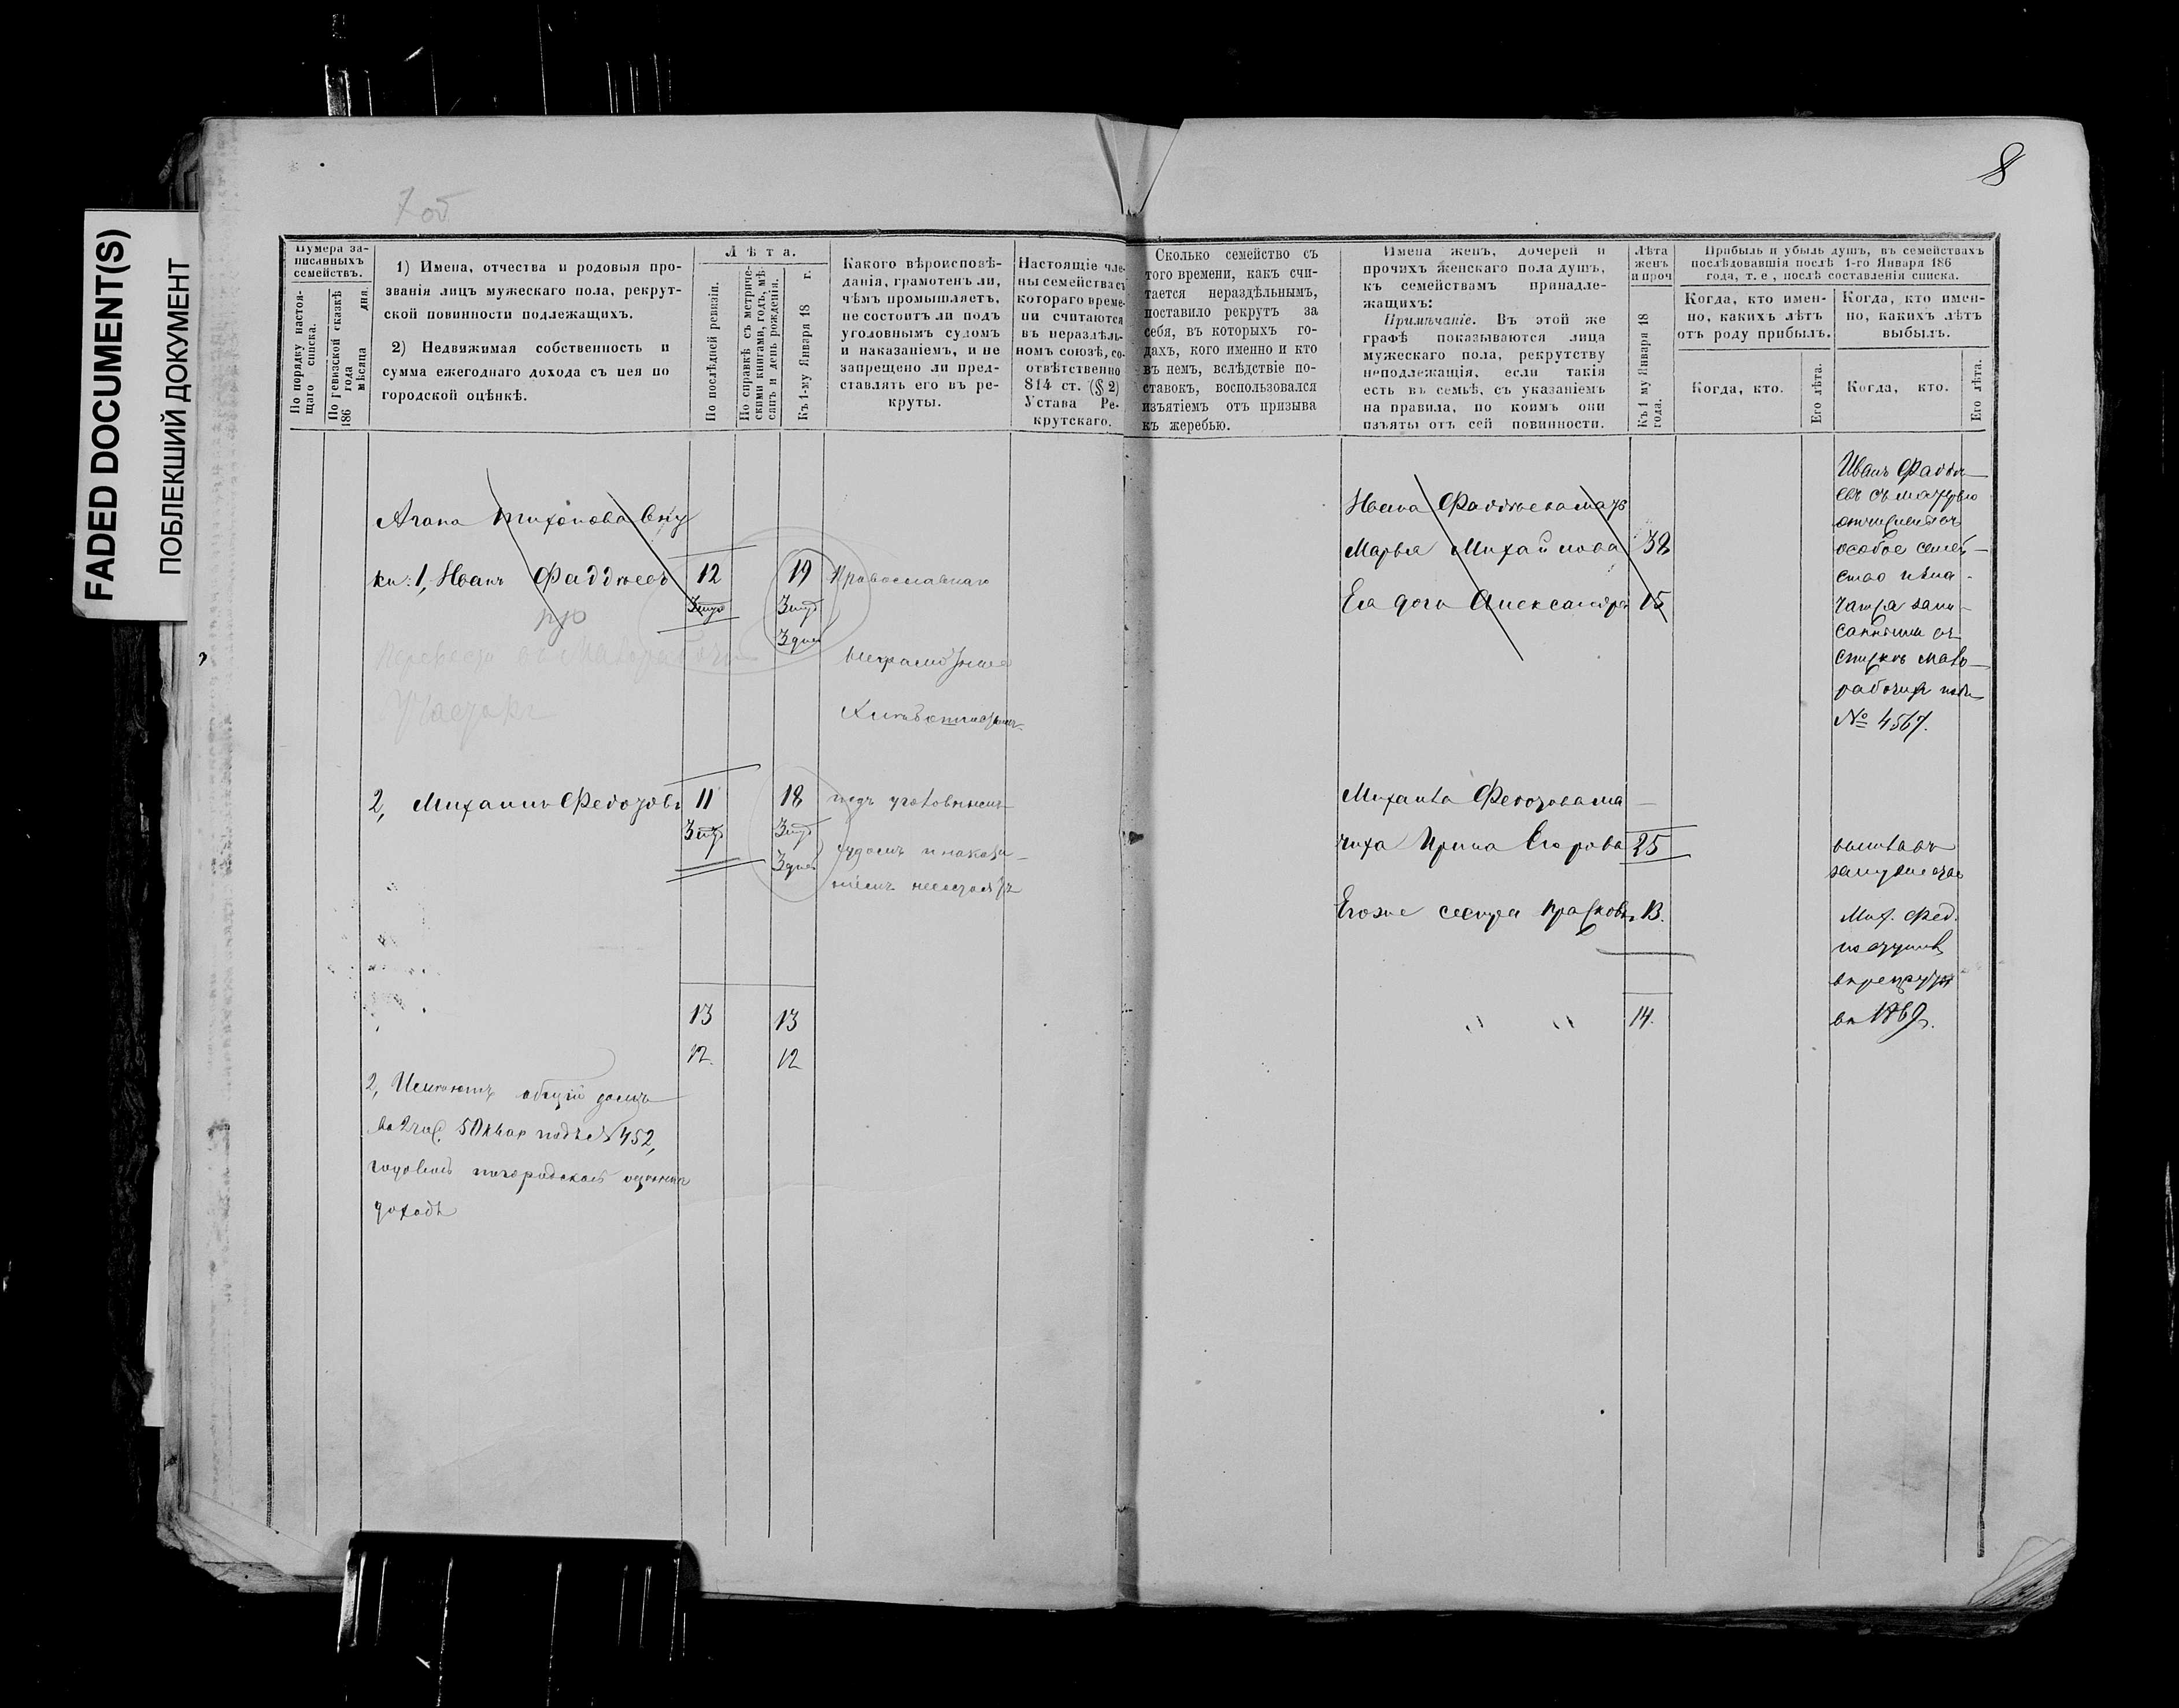 FADED DOCUMENT(S)
ПОБЛЕКШИЙ ДОКУМЕНТ
7 об
8
Нумера записанныхъ семействъ.
По порядку настоящаго списка.
По ревизской сказкѣ 186 года мѣсяца дня.
1) Имена, отчества и родовыя прозванія лицъ мужескаго пола, рекрутской повинности подлежащихъ.
2) Недвижимая собственность и сумма ежегоднаго дохода съ нея по городской оцѣнкѣ.
Лѣта.
По послѣдней ревизіи.
По справкѣ съ метрическими книгами, годъ, мѣсяцъ и день рожденія.
Къ 1-му Января 18 г.
Какого вѣроисповѣданія, грамотенъ ли, чѣмъ промышляетъ, не состоитъ ли подъ уголовнымъ судомъ и наказаніемъ, и не запрещено ли представлять его въ рекруты.
Настоящіе члены семейства съ котораго времени считаются въ нераздѣльномъ союзѣ, соотвѣтственно 814 ст. (§ 2) Устава Рекрутскаго.
Сколько семейство съ того времени, какъ считается нераздѣльнымъ, поставило рекрутъ за себя, въ которыхъ годахъ, кого именно и кто въ немъ, вслѣдствіе поставокъ, воспользовался изъятіемъ отъ призыва къ жеребью.
Имена женъ, дочерей и прочихъ женскаго пола душъ, къ семействамъ принадлежащихъ:
Примѣчаніе. Въ этой же графѣ показываются лица мужескаго пола, рекрутству неподлежащія, если такія есть въ семьѣ, съ указаніемъ на правила, по коимъ они изъяты отъ сей повинности.
Лѣта женъ и проч
Къ 1 му Января 18 года.
Прибыль и убыль душъ, въ семействахъ послѣдовавшія послѣ 1-го Января 186 года, т. е., послѣ составленія списка.
Когда, кто именно, какихъ лѣтъ отъ роду прибылъ.
Когда, кто именно, какихъ лѣтъ выбылъ.
Когда, кто.
Его лѣта.
Когда, кто.
Его лѣта.
Агапа Тихонова вну
ки: 1, Иванъ Фаддѣевъ 12 19 Православнаго
3 дней
2, Михаилъ Федоровъ 11 18 подъ уголовнымъ
3 дней судомъ и наказа
ніемъ несостоятъ
13 13
12. 12
2, Имѣютъ общій домъ
во 2 час. 50 квар подъ № 452,
доходъ
Ивана Фаддѣева мать
Марья Михайлова 38
Ея дочь Александра 15
Михаила Федорова ма
чиха Ирина Егорова 25
Его же сестра Прасковья 13.
" " 14.
Иванъ Фаддѣ
евъ съ матерью
отчисленъ въ
особое семей
ство
рабочихъ подъ
№ 4567.
вышла въ
замужество
Мих. Фед.
поступилъ
въ рекруты
въ 1869.